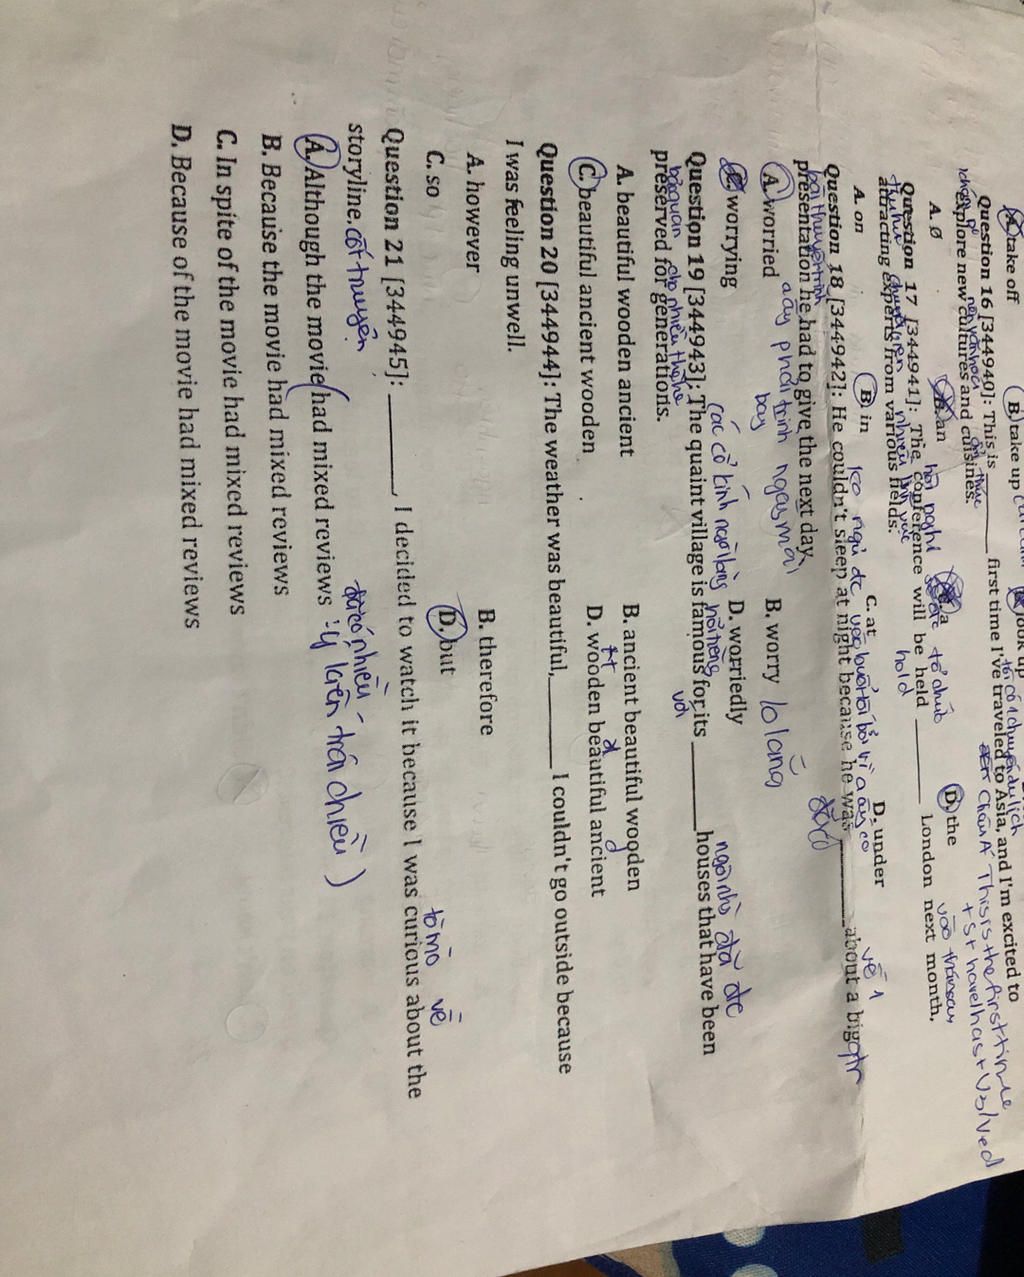 A. take off B. take up look up
Question 16 [344940]: This is ______ first time I've traveled to Asia, and I'm excited to
explore new cultures and cuisines.
A. Ø B. an C. a D. the
This is the first time
+ S + have/has + V3/ved
Question 17 [344941]: The conference will be held ______ London next month,
attracting experts from various fields.
hội nghị tổ chức hold
A. on B. in C. at D. under
Question 18 [344942]: He couldn't sleep at night because he was ______ about a big
presentation he had to give the next day.
bài thuyết trình
A. worried B. worry lo lắng
a ấy phải trình bày ngày mai
C. worrying D. worriedly
Question 19 [344943]: The quaint village is famous for its ______ houses that have been
nổi tiếng với ngôi nhà đã đc
preserved for generations.
bảo quản cho nhiều thế hệ
A. beautiful wooden ancient B. ancient beautiful wooden
C. beautiful ancient wooden D. wooden beautiful ancient
Question 20 [344944]: The weather was beautiful, ______ I couldn't go outside because
I was feeling unwell.
A. however B. therefore
C. so D. but
Question 21 [344945]: ______, I decided to watch it because I was curious about the
tò mò về
storyline. cốt truyện
A. Although the movie had mixed reviews : ý kiến trái chiều )
B. Because the movie had mixed reviews
C. In spite of the movie had mixed reviews
D. Because of the movie had mixed reviews